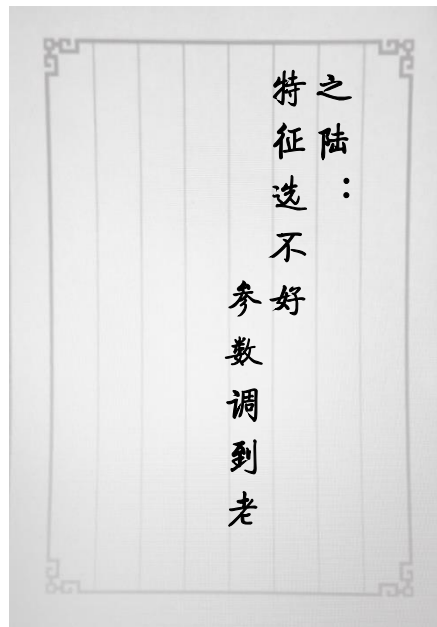 之陆：
特征选不好
参数调到老